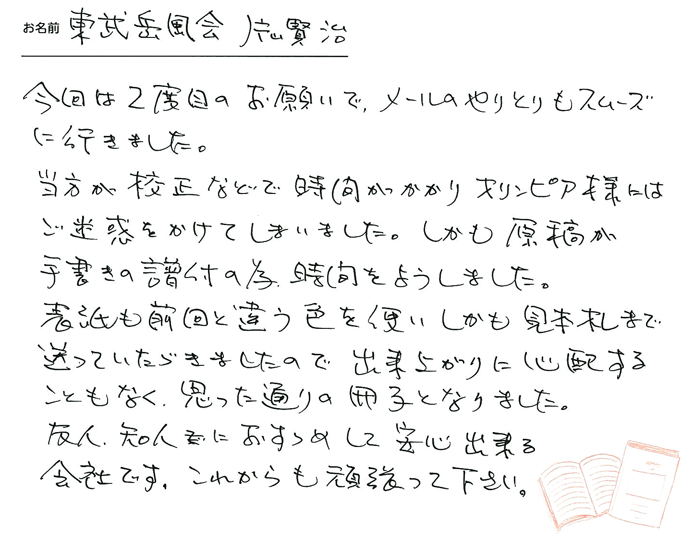 お名前 東武岳風会 賢治
今回は2度目のお願いで、メールのやりとりもスムーズ
に行きました。
当方が校正などで時間がかかり オリンピア様には
ご迷惑をかけてしまいました。しかも原稿が
手書きの譜付の為、時間をようしました。
表紙も前回と違う色を使い しかも見本札まで
送っていただきましたので 出来上がりに心配する
こともなく、思った通りの冊子となりました。
友人、知人におすすめして安心出来る
会社です。これからも頑張って下さい。